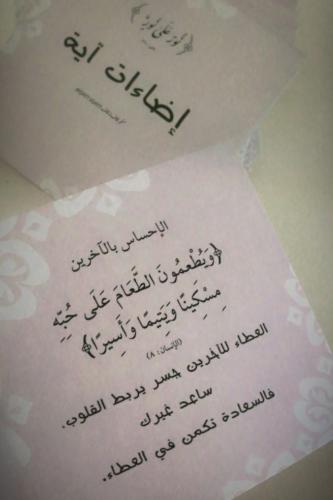 ﴿نُورٌ عَلَى نُورٍ﴾
إضاءات آية
الإحساس بالآخرين
﴿وَيُطْعِمُونَ الطَّعَامَ عَلَى حُبِّهِ
مِسْكِينًا وَيَتِيمًا وَأَسِيرًا﴾
(الإنسان: ٨)
العطاء للآخرين جسر يربط القلوب.
ساعد غيرك
فالسعادة تكمن في العطاء.